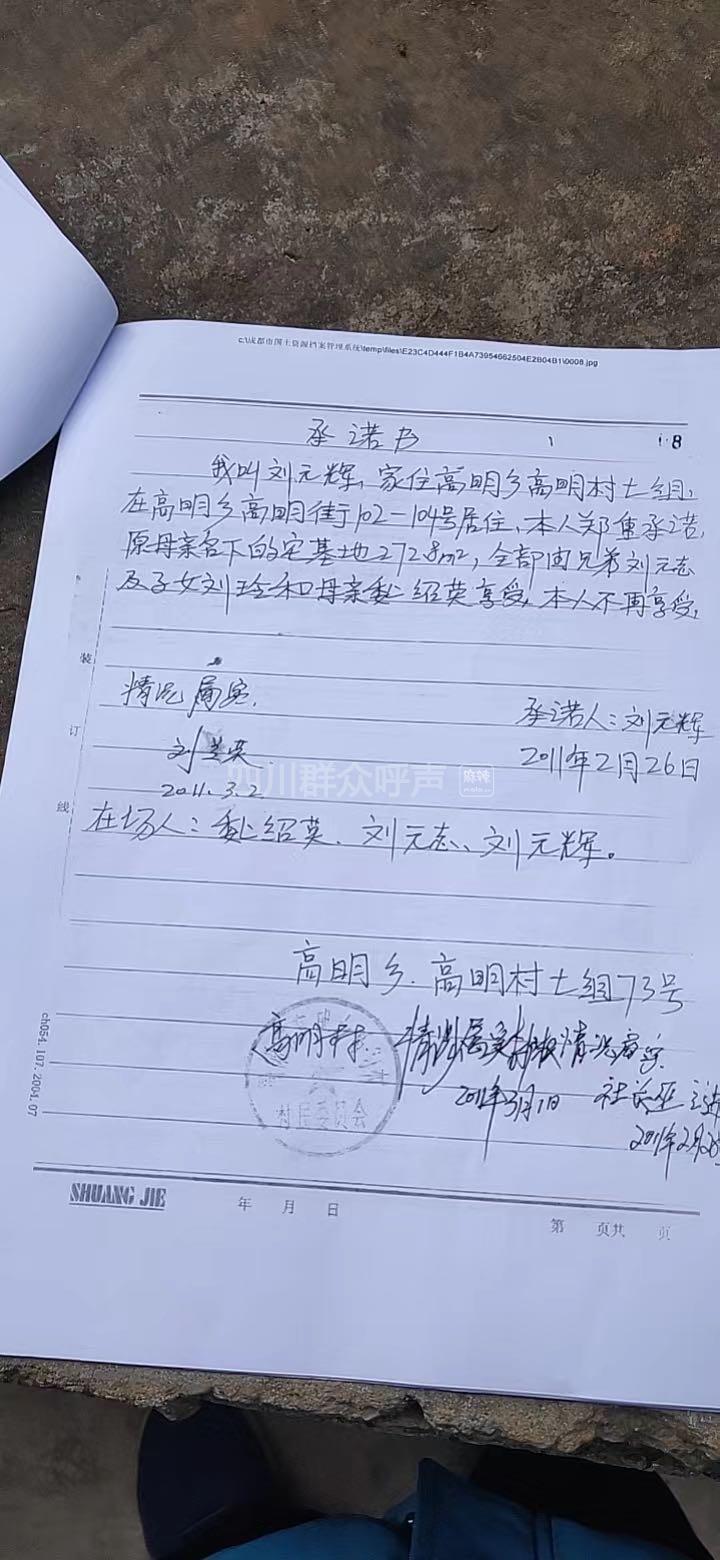 c:\成都市国土资源档案管理系统\temp\files\E23C4D444F1B4A73954662504E2B04B1\0008.jpg
承诺书
1 8
我叫刘元辉,家住高明乡高明村七组,
在高明乡高明街102-104号居住,本人郑重承诺,
原母亲名下的宅基地272.8m²,全部由兄弟刘元志
及子女刘玲和母亲 绍英享受,本人不再享受,
装
情况属实.
承诺人:刘元辉
订
刘 英
2011年2月26日
四川群众呼声 麻辣
2011.3.2
线
在场人: 绍英、刘元志、刘元辉。
高明乡.高明村七组73号
高明村. 情况属实 情况属实
2011年3月1日 社长
2011年2月
村民委员会
ch054.107.2004.07
SHUANG JIE
年 月 日
第 页共 页